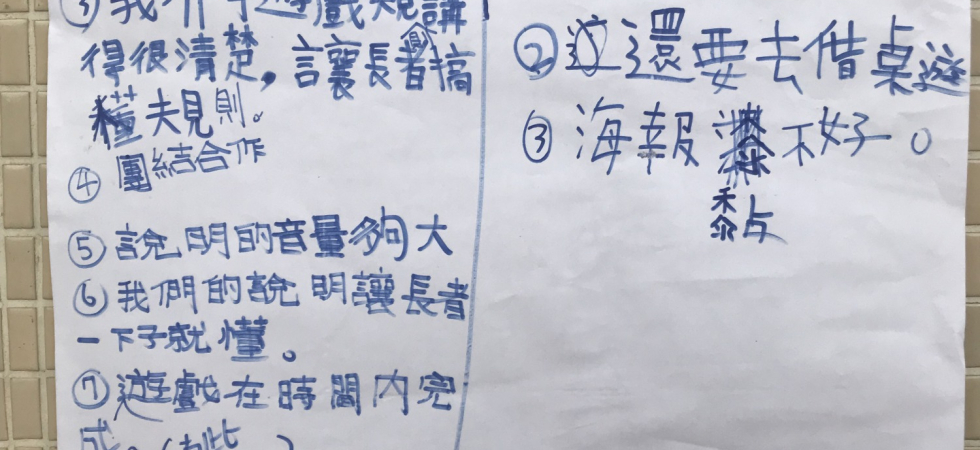 ③我們遊戲規講
得很清楚，讓長者搞
懂夫見則。
④團結合作
⑤說明的音量夠大
⑥我們的說明讓長者
一下子就懂。
⑦遊戲在時間內完
成。(
②還要去借桌遊
③海報不好。
黏